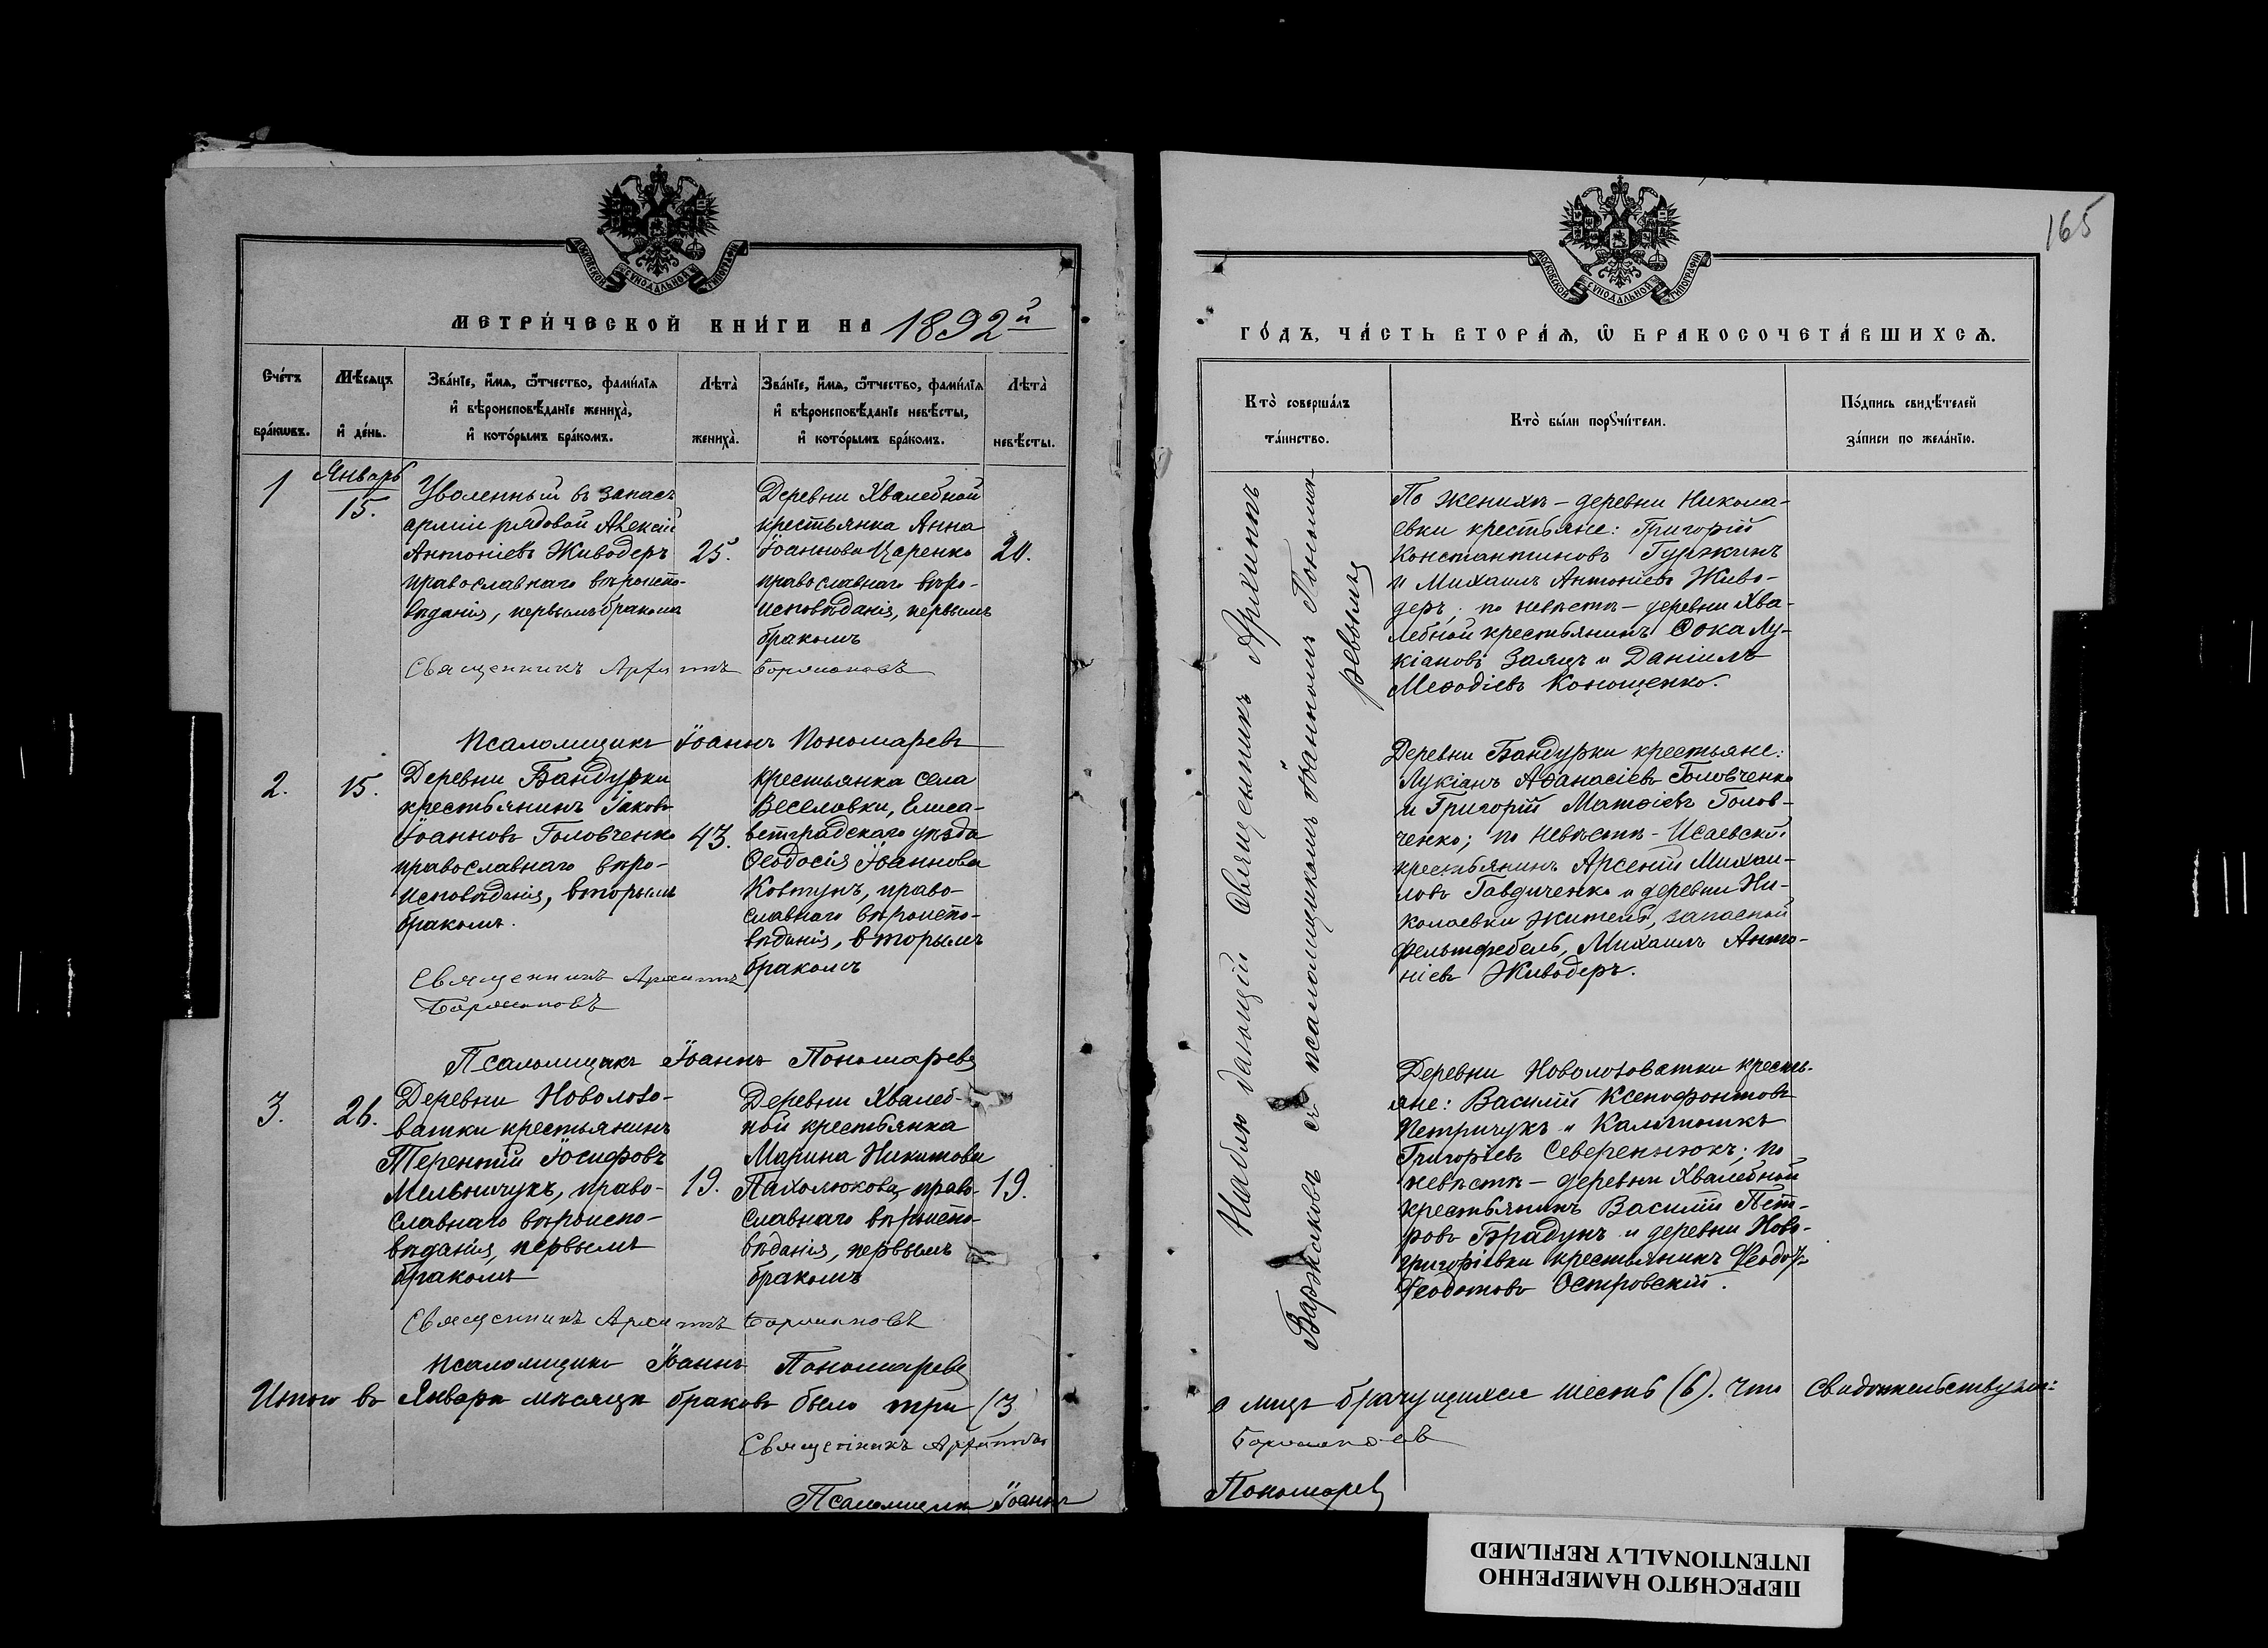 МОСКОВСКОЙ СѴНОДАЛЬНОЙ ТИПОГРАФІИ
МЕТРИ́ЧЕСКОЙ КНИ́ГИ НА 1892й
Сче́тъ бра́кωвъ.
Мѣ́сяцъ и҆ де́нь.
Зва́нїе, и҆́мѧ, ѻ҆́тчество, фами́лїѧ
и҆ вѣроисповѣ́данїе жениха̀,
и҆ кото́рымъ бра́комъ.
Лѣта̀ жениха̀.
Зва́нїе, и҆́мѧ, ѻ҆́тчество, фами́лїѧ
и҆ вѣроисповѣ́данїе невѣ́сты,
и҆ кото́рымъ бра́комъ.
Лѣта̀ невѣ́сты.
1
Январь
15.
Уволенный въ запасъ
арміи рядовой Алексій
Антоніевъ Живодеръ
православнаго вѣроиспо-
вѣданія, первымъ бракомъ
25.
Деревни Хвалебной
крестьянка Анна
Іоаннова Царенко
православнаго вѣро-
исповѣданія, первымъ
бракомъ
20.
Священникъ Архипъ
Псаломщикъ Іоаннъ Пономаревъ
2.
15.
Деревни Бандурки
крестьянинъ Іаковъ
Іоанновъ Головченко
православнаго вѣро-
исповѣданія, вторымъ
бракомъ.
43.
крестьянка села
Веселовки, Елиса-
ветградскаго уѣзда
Ѳеодосія Іоаннова
Ковтунъ, право-
славнаго вѣроиспо-
вѣданія, вторымъ
бракомъ
Священникъ Архипъ
Псаломщикъ Іоаннъ Пономаревъ
3.
26.
Деревни Новолозо-
ватки крестьянинъ
Терентій Іосифовъ
Мельничукъ, право-
славнаго вѣроиспо-
вѣданія, первымъ
бракомъ
19.
Деревни Хвалеб-
ной крестьянка
Марина Никитова
Пахолюкова право-
славнаго вѣроиспо-
вѣданія, первымъ
бракомъ
19.
Священникъ Архипъ
Псаломщикъ Іоаннъ Пономаревъ
Итого въ Январѣ мѣсяцѣ браковъ было три (3)
Священникъ Архипъ
Псаломщикъ Іоаннъ
165
МОСКОВСКОЙ СѴНОДАЛЬНОЙ ТИПОГРАФІИ
ГО́ДЪ, ЧА́СТЬ ВТОРА́Ѧ, Ѽ БРАКОСОЧЕТА́ВШИХСѦ.
Кто̀ соверша́лъ
та́инство.
Кто̀ бы́ли порꙋчи́тели.
По́дпись свидѣ́телей
за́писи по жела́нїю.
Наблюдающій Священникъ Архипъ
съ псаломщикомъ Іоанномъ Понома-
ревымъ
По женихѣ - деревни Никола-
евки крестьяне: Григорій
Константиновъ Гуржинъ
и Михаилъ Антоніевъ Живо-
деръ; по невѣстѣ - деревни Хва-
лебной крестьянинъ Ѳока Лу-
кіановъ Заяцъ и Даніилъ
Меѳодіевъ Конощенко.
Деревни Бандурки крестьяне:
Лукіанъ Аѳанасіевъ Головченко
и Григорій Матѳіевъ Голов-
ченко; по невѣстѣ - Исаевскій
крестьянинъ Арсеній Михаи-
ловъ Гавдиченко и деревни Ни-
колаевки житель, запасной
фельтфебель, Михаилъ Анто-
ніевъ Живодеръ.
Деревни Новолозоватки кресть-
яне: Василій Ксенофонтовъ
Петричукъ и
Григоріевъ Северенюкъ; по
невѣстѣ - деревни Хвалебной
крестьянинъ Василій Пет-
ровъ Брадунъ и деревни Ново-
григорієвки крестьянинъ Ѳеодоръ
Ѳеодотовъ Островскій.
а лицъ брачущихся шесть (6). Что свидѣтельствуемъ:
Пономаревъ
ПЕРЕСНЯТО НАМЕРЕННО
INTENTIONALLY REFILMED